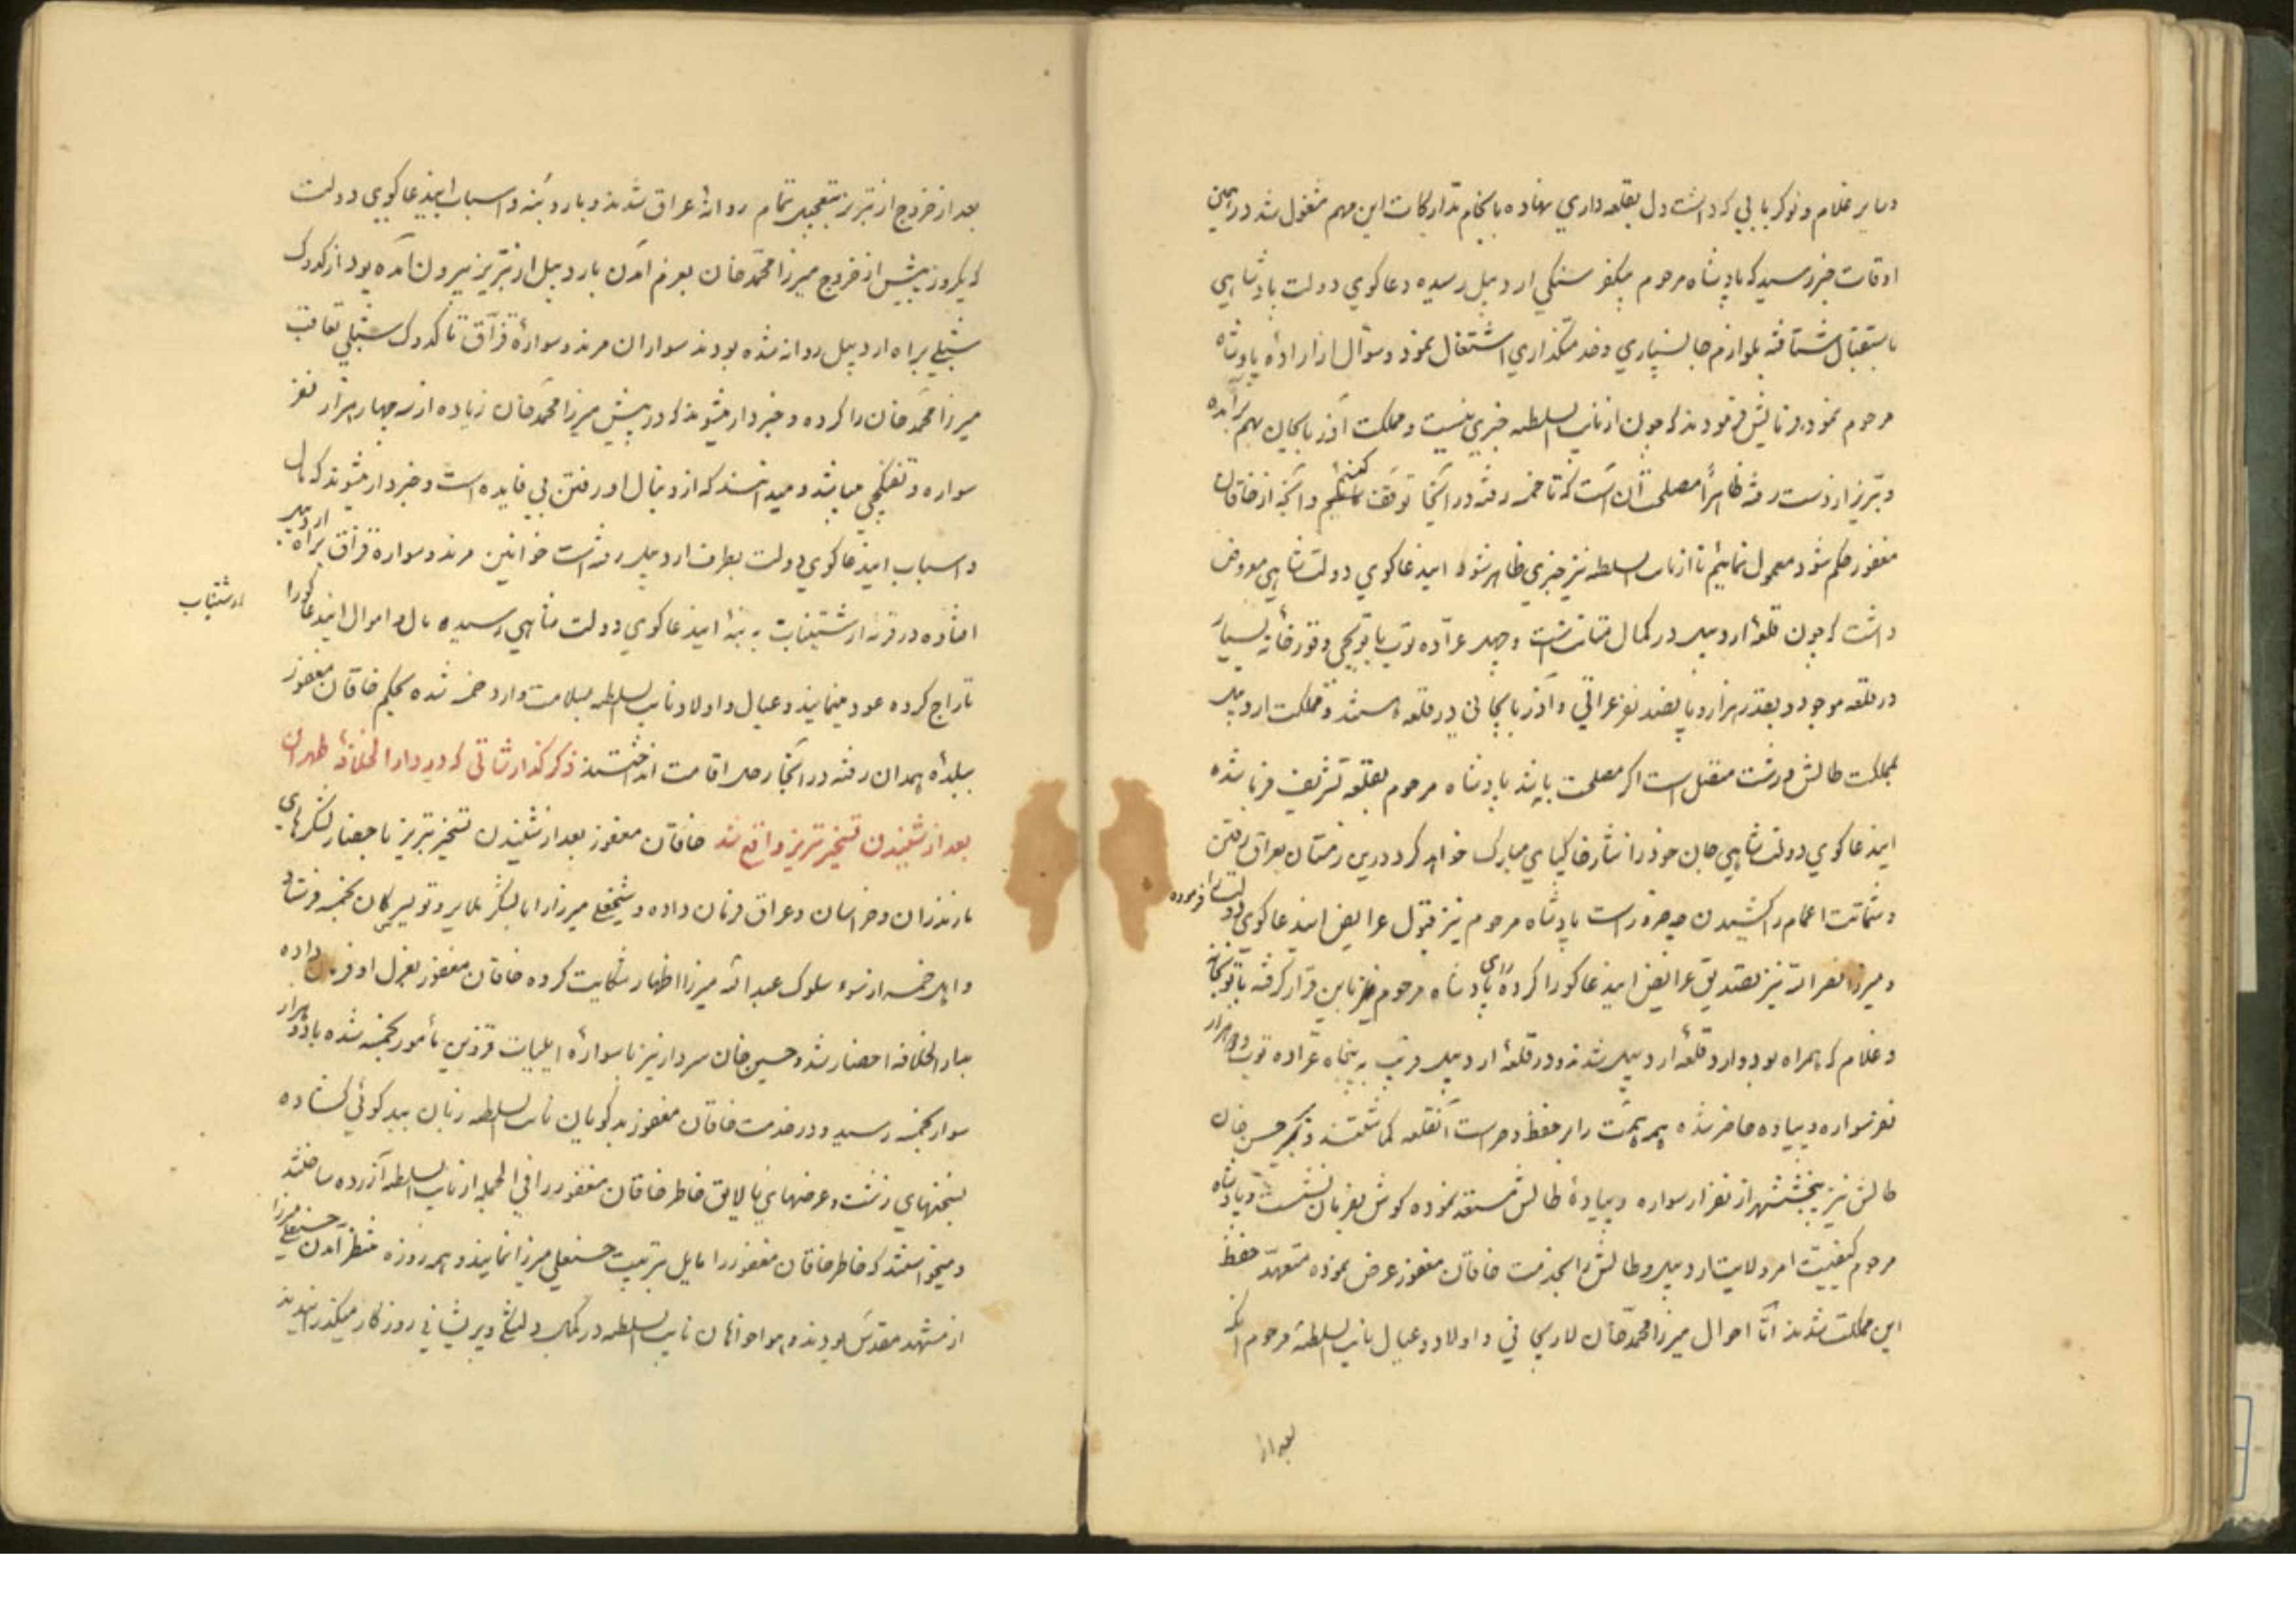 و سایر غلام و نوکر بابی که داشت دل بقلعه داری نهاده بانجام تدارکات این مهم مشغول شد در همین
اوقات خبر رسید که پادشاه مرحوم بیکفر سنکی اردبیل رسیده دعاکوی دولت پادشاهی
باستقبال شتافته بلوازم جانسپاری و خدمتکذاری اشتغال نمود و سؤال از اراده پادشاه
مرحوم نمود فرمایش فرمودند که چون از نایب السلطنه خبری نیست و مملکت آذربایجان بهم برآمده
و تبریز از دست رفته ظاهراً مصلحت آن است که تا خمسه رفته در آنجا توقف کنیم و آنچه از خاقان
مغفور حکم شود معمول نمائیم تا از نایب السلطنه نیز خبری ظاهر شود اینداعاکوی دولت شاهی معروض
داشت که چون قلعهٔ اردبیل در کمال متانت است و چهل عرّاده توپ با توپچی و قورخانهٔ بسیار
در قلعه موجود و بقدر هزار و پانصد نفر عراقی و آذربایجانی در قلعه هستند و مملکت اردبیل
بمملکت طالش و رشت متصل است اکر مصلحت باشد پادشاه مرحوم بقلعه تشریف فرما شده
ایندعاکوی دولت شاهی جان خود را نثار خاکپای مبارک خواهد کرد در این زمستان بعراق رفتن
و شماتت اعمام را کشیدن چه ضرور است پادشاه مرحوم نیز قبول عرایض ایندعاکوی دولت را فرموده
و میرزا نصراله نیز تصدیق عرایض ایندعاکو را کرده رای پادشاه مرحوم نیز باین قرار کرفته با توپخانه
و غلام که همراه بود وارد قلعهٔ اردبیل شدند و در قلعهٔ اردبیل قریب به پنجاه عرّاده توپ و دو هزار
نفر سواره و پیاده حاضر شده همه همّت را بر حفظ و حراست آنقلعه کماشتند و میر حسن خان
طالش نیز پنجشش هزار نفر از سواره و پیادهٔ طالش مستعد نموده کوش بفرمان نشست و پادشاه
مرحوم کیفیت امر ولایت اردبیل و طالش را بخدمت خاقان مغفور عرض نموده متعهّد حفظ
این مملکت شدند امّا احوال میرزا محمّد خان لاریجانی و اولاد و عیال نایب السلطنهٔ مرحوم آنکه
بعد از
بعد از خروج از تبریز بتعجیل تمام روانهٔ عراق شدند و بار و بنه و اسباب ایندعاکوی دولت
که یکروز پیش از خروج میرزا محمّد خان بعزم آمدن باردبیل از تبریز بیرون آمده بود از کدوک
شبلی براه اردبیل روانه شده بودند سواران مرند و سوارهٔ قزّاق تا کدوک شبلی تعاقب
میرزا محمّد خان را کرده و خبردار میشوند که در پیش میرزا محمّد خان زیاده از سه چهار هزار نفر
سواره و تفنکچی میباشد و میدانستند که از دنبال او رفتن بی فایده است و خبردار میشوند که مال
و اسباب ایندعاکوی دولت بطرف اردبیل رفته است خوانین مرند و سوارهٔ قزّاق براه اردبیل
افتاده در قریه ارشتناب به بنهٔ ایندعاکوی دولت شاهی رسیده مال و اموال ایندعاکو را
ارشتناب
تاراج کرده عود مینمایند و عیال و اولاد نایب السلطنه بسلامت وارد خمسه شده بحکم خاقان مغفور
ببلدهٔ همدان رفته در آنجا رحل اقامت انداختند ذکر کذارشاتی که در دار الخلافهٔ طهران
بعد از شنیدن تسخیر تبریز واقع شد خاقان مغفور بعد از شنیدن تسخیر تبریز باحضار لشکرهای
مازندران و خراسان و عراق فرمان داده و شیخعلی میرزا را با لشکر ملایر و تویسرکان بخمسه فرستاد
و اهل خمسه از سوء سلوک عبد اللّه میرزا اظهار شکایت کرده خاقان مغفور بعزل او فرمان داده
بدار الخلافه احضار شد و حسین خان سردار نیز با سوارهٔ ایلیات قزوین مأمور بخمسه شده با دو هزار
سوار بخمسه رسید و در خدمت خاقان مغفور بدکویان نایب السلطنه زبان ببدکوئی کشاده
بسخنهای زشت و عرضهای نالایق خاطر خاقان مغفور را فی الجمله از نایب السلطنه آزرده ساختند
و میخواستند که خاطر خاقان مغفور را مایل بتربیت حسنعلی میرزا نمایند و همه روزه منتظر آمدن حسنعلی میرزا
از مشهد مقدّس بودند و هواخواهان نایب السلطنه در کمال دلتنکی و پریشانی روزکار میکذرانیدند